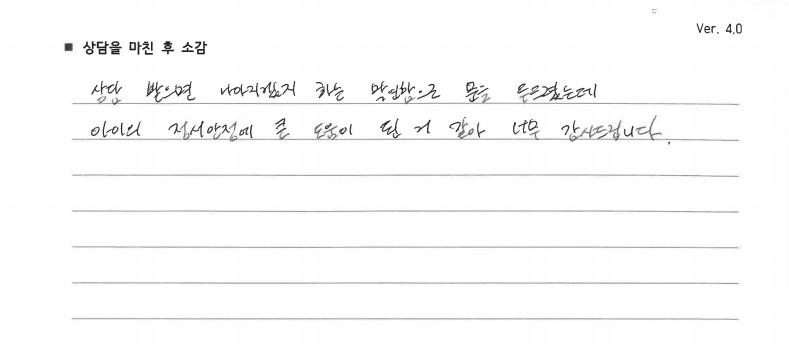 Ver. 4.0
■ 상담을 마친 후 소감
상담 받으면 나아지겠지 하는 막연함으로 문을 두드렸는데
아이의 정서안정에 큰 도움이 된 거 같아 너무 감사드립니다.